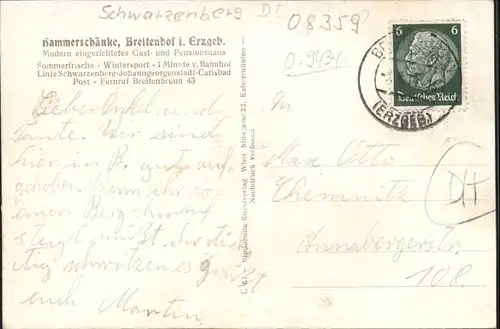 Schwarzenberg D
08359
0.9434
Hammerschänke, Breitenhof i. Erzgeb.
Modern eingerichtetes Gast- und Pensionshaus
Sommerfrische - Wintersport - 1 Minute v. Bahnhof
Linie Schwarzenberg-Johanngeorgenstadt-Carlsbad
Post - Fernruf Breitenbrunn 43
6 6
Deutsches Reich
(ERZGEB)
Lieber Onkel und
Tante. Wir sind
hier in B. gut auf-
gehoben. Wenn ihr so
einen Berg hinauf
steigt müßt ihr tüch
tig schwitzen es grüßt
euch Martin.
An
Max Otto
Chemnitz
Annabergerstr.
108.
DH
Nachdruck verboten